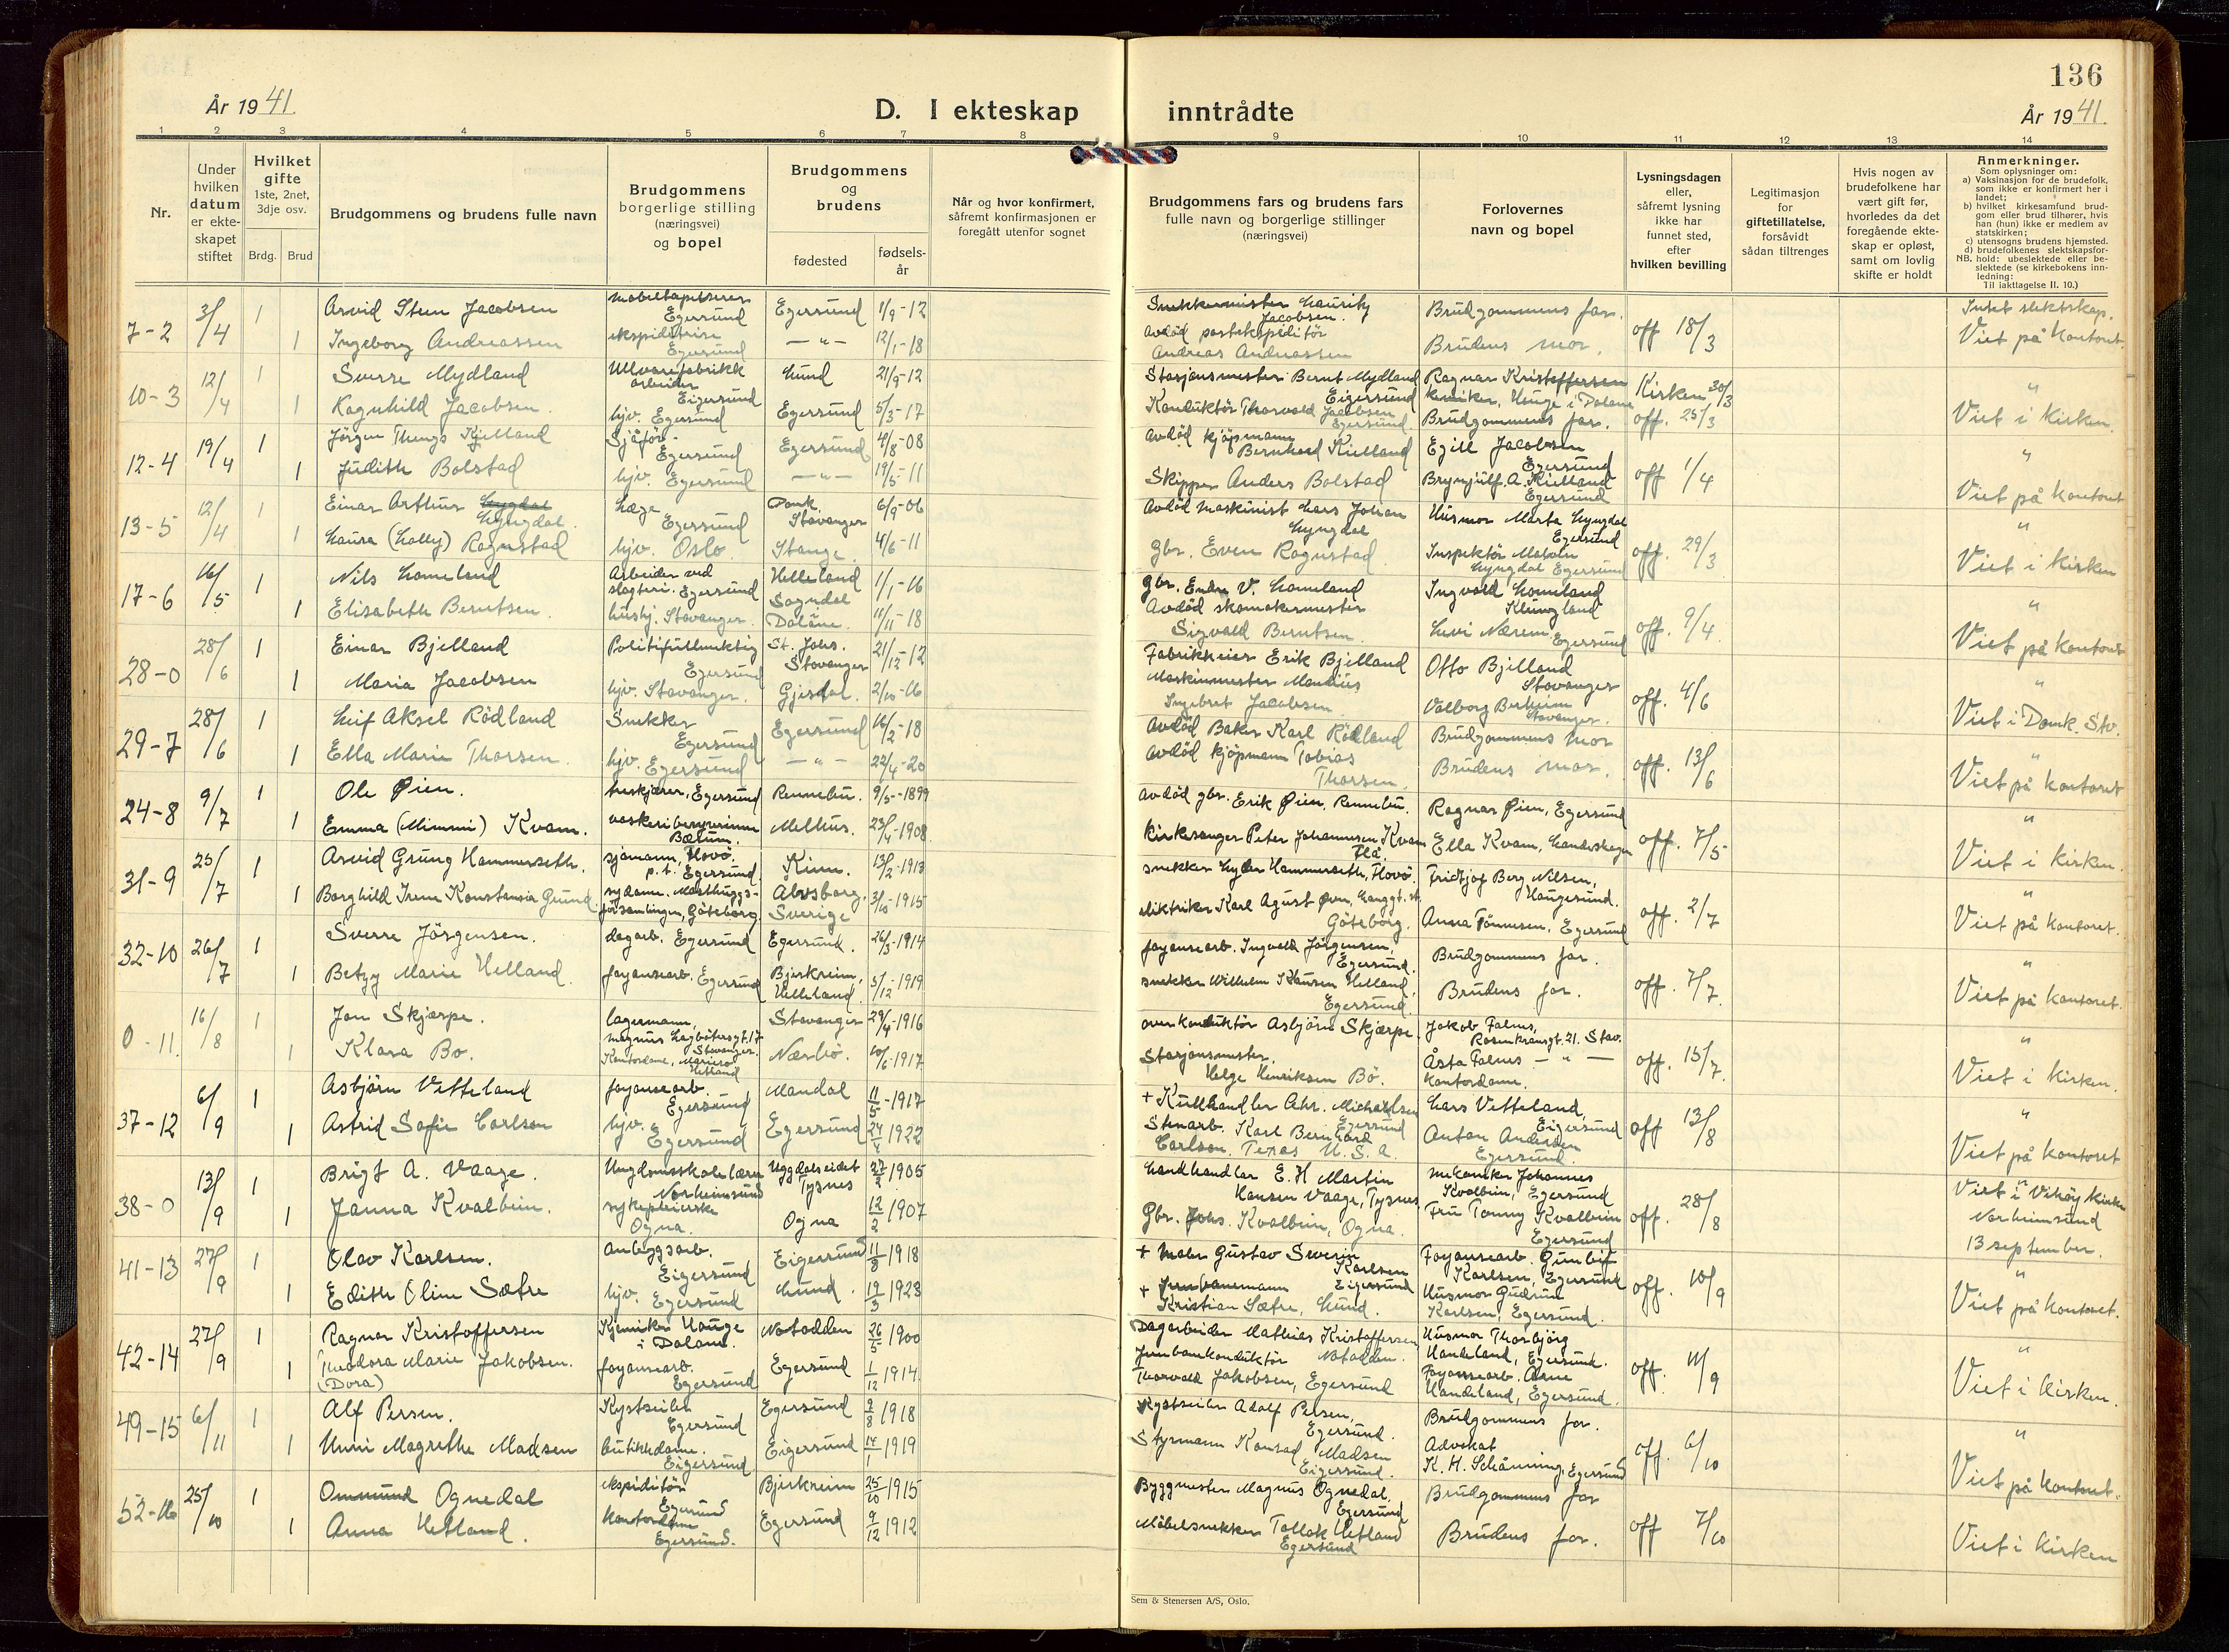 136
År 1941.
D. I ekteskap inntrådte
År 1941.
1 2 3 4 5 6 7 8 9 10 11 12 13 14
Nr.
Under hvilken datum er ekte- skapet stiftet
Hvilket gifte 1ste, 2net, 3dje osv.
Brdg. Brud
Brudgommens og brudens fulle navn
Brudgommens borgerlige stilling (næringsvei) og bopel
Brudgommens og brudens
fødested
fødsels- år
Når og hvor konfirmert, såfremt konfirmasjonen er foregått utenfor sognet
Brudgommens fars og brudens fars fulle navn og borgerlige stillinger (næringsvei)
Forlovernes navn og bopel
Lysningsdagen eller, såfremt lysning ikke har funnet sted, efter hvilken bevilling
Legitimasjon for giftetillatelse, forsåvidt sådan tiltrenges
Hvis nogen av brudefolkene har vært gift før, hvorledes da det foregående ekte- skap er opløst, samt om lovlig skifte er holdt
Anmerkninger.
Som oplysninger om:
a) Vaksinasjon for de brudefolk, som ikke er konfirmert her i landet;
b) hvilket kirkesamfund brud- gom eller brud tilhører, hvis han (hun) ikke er medlem av statskirken;
c) utensogns brudens hjemsted.
d) brudefolkenes slektskapsfor- hold: ubeslektede eller be- slektede (se kirkebokens inn- ledning:
NB. Til iakttagelse II. 10.)
7-2 3/4 1 Arvid Steen Jacobsen møbeltapetserer Egersund Egersund 1/9-12 Snekkermester Lauritz Jacobsen. Brudgommens far. off 18/3 Intet slektskap.
1 Ingeborg Andreassen ekspiditrise Egersund -"- 12/1-18 avdød postekspiditør Andreas Andreassen Brudens mor. Viet på kontoret.
10-3 12/4 1 Sverre Mydland Ullvarefabrikk arbeider Eigersund Lund 21/9-12 Stasjonsmester Bernt Mydland Eigersund Ragnar Kristoffersen kemiker, Hauge i Dalane Kirken 30/3 "
1 Ragnhild Jacobsen. hjv. Egersund Egersund 5/3-17 Konduktør Thorvald Jacobsen Egersund. Brudgommens far. off. 25/3 Viet i kirken.
12-4 19/4 1 Jörgen Thengs Kjelland Sjåfør- Egersund Egersund 4/8-08 avdød kjøpmann Bernhard Kielland Egill Jacobsen Egersund off 1/4 "
1 Judith Bolstad hjv. Egersund -"- 19/5-11 Skipper Anders Bolstad Brynjulf A. Kielland Egersund Viet på kontoret
13-5 12/4 1 Einar Arthur Lyngdal Læge Egersund Domk. Stavanger 6/9-06 avdød maskinist Lars Johan Lyngdal Husmor Marta Lyngdal Egersund off. 29/3 "
1 Laura (Lolly) Rognstad hjv. Oslo. Stange 4/6-11 Gbr. Even Rognstad Inspektør Lyngdal Egersund Viet i kirken
17-6 16/5 1 Nils Lomeland Arbeider ved slagteri. Egersund Helleland 1/1-16 gbr. Endre V. Lomeland Ingvald Lomeland Klungland off. 9/4. "
1 Elisabeth Berntsen hushj. Stavanger. Sogndal Dalane. 11/11-18 Avdød skomakermester Sigvald Berntsen. Levi Nærem Egersund Viet på kontoret
28-0 28/6 1 Einar Bjelland Politifullmektig Egersund St. Johs. Stavanger 21/12-12 Fabrikkeier Erik Bjelland Otto Bjelland Stavanger off. 4/6 "
1 Maria Jacobsen hjv. Stavanger. Gjesdal. 2/10-16 Maskinmester Mandius Ingebret Jacobsen Valborg Stavanger. Viet i Domk. Stv.
29-7 28/6 1 Leif Aksel Rødland Snekker Egersund Egersund 16/2-18 avdød Baker Karl Rødland Brudgommens mor off. 13/6 "
1 Ella Marie Thorsen. hjv. Egersund -"- 22/4-20 avdød kjøpmann Tobias Thorsen. Brudens mor. Viet på kontoret
24-8 9/7 1 Ole Øien. treskjærer, Egersund Rennebu. 9/5-1899 avdød gbr. Erik Øien, Rennebu. Ragnar Øien, Egersund off. 7/5 "
1 Emma (Mimmi) Kvam. vaskeribestyrerinne Bærum. Melhus. 23/4-1908 kirkesanger Peter Johannesen Kvam Flå. Ella Kvam, Viet i kirken.
31-9 25/7 1 Arvid Grung Hammerseth. sjømann, Hovø. p.t. Egersund. Kinn. 13/2-1913 snekker Hammerseth, Hovø. Fridtjof Berg Nilsen, Haugesund. off. 2/7 "
1 Borghild Irene Konstansia sydame. Masthuggs- församlingen, Göteborg. Älvsborg. Sverige 3/10-1915 elektriker Karl Agust Göteborg. Anna Tønnesen, Egersund Viet på kontoret.
32-10 26/7 1 Sverre Jörgensen. dagarb. Egersund Egersund. 26/3-1914 fayansearb. Ingvald Jørgensen, Egersund. Brudgommens far. off. 7/7. "
1 Betzy Marie Helland. fayansearb. Egersund Bjerkreim, Helleland 5/12-1919 snekker Wilhelm Klausen Helland, Egersund. Brudens far. Viet på kontoret.
0-11. 16/8 1 Jon Skjærpe. lagermann, Magnus Lagbøtersgt. 17 Stavanger. Stavanger 29/4-1916 overkonduktør Asbjørn Skjærpe. Jakob Falnes, Rosenkransgt. 21. Stav. off. 15/7. "
1 Klara Bø. Kontordame, Mariero Hetland Nærbø. 10/6-1917 Stasjonsmester. Helge Henriksen Bø. Åsta Falnes -"- kontordame. Viet i kirken.
37-12 6/9 1 Asbjørn Vetteland fayansearb. Egersund Mandal 11/5-1917 + Kullhandler Chr. Michaelsen Egersund Lars Vetteland, Eigersund off 13/8 "
1 Astrid Sofie Carlson hjv. Egersund Egersund 1922 Stenarb. Karl Bernhard Carlson. Texas U.S.A. Anton Andersen Egersund. Viet på kontoret
38-0 13/9 1 Brigt A. Vaage. Ungdomsskolelærer Norheimsund Uggdalseidet Tysnes 27/2 1905 Landhandlar E. H Martin Hansen Vaage, Tysnes mekaniker Johannes Kvalbein, Egersund off. 28/8 "
1 Janna Kvalbein. sykepleierske Ogna. Ogna 12/2 1907 Gbr. Johs. Kvalbein, Ogna. Fru Tonny Kvalbein Egersund Viet i Vikøy kirke Norheimsund 13 september.
41-13 27/9 1 Olav Karlsen. anleggsarb. Eigersund Eigersund 11/8 1918 + Maler Gustav Severin Karlsen Eigersund Fayansearb. Gunleif Karlsen, Egersund off. 10/9 "
1 Edith Oline Sætre hjv. Egersund Lund. 19/3 1923 + Jernbanemann Kristian Sætre, Lund. Husmor Gudrun Karlsen, Egersund. Viet på kontoret.
42-14 27/9 1 Ragnar Kristoffersen Kjemiker Hauge i Dalane. Notodden 26/5 1900 Dagarbeider Mathias Kristoffersen Notodden. Husmor Thorbjörg Handeland, Egersund. off. 11/9 "
1 Theodora Marie Jakobsen. (Dora) fayansearb. Egersund Egersund 1/12 1914. Jernbanekonduktør Thorvald Jakobsen, Egersund Fayansearb. Arne Handeland, Egersund. Viet i kirken.
49-15 6/11 1 Alf Persen. Kystseiler Egersund Egersund 9/8 1918 Kystseiler Adolf Persen, Egersund. Brudgommens far. off. 6/10 "
1 Unni Magrethe Madsen butikkdame. Eigersund Eigersund 14/1 1919 Styrmann Konrad Madsen Eigersund. Advokat K. H. Schånning, Egersund Viet på kontoret.
52-16 25/10 1 Ommund Ognedal ekspiditör Egersund Bjerkreim 25/10 1915 Byggmester Magnus Ognedal, Egersund Brudgommens far off 7/10
1 Anna Hetland. kontordame Egersund. Egersund 9/12 1912 Møbelsnekker Tollak Hetland Egersund Brudens far. Viet i kirken
Sem & Stenersen A/S, Oslo.